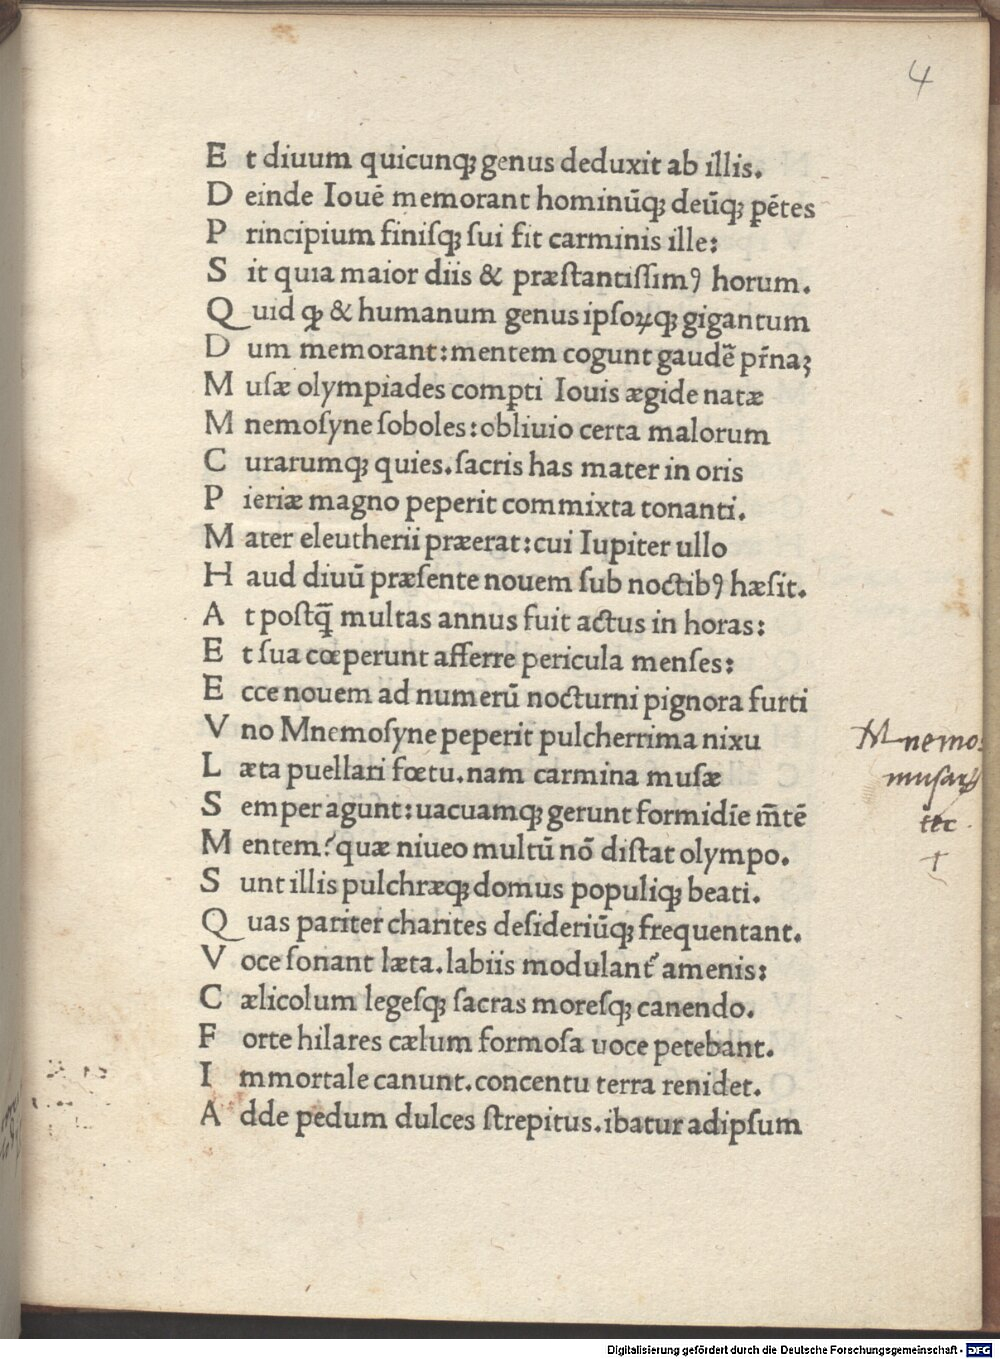 4
E t diuum quicunqꝫ genus deduxit ab illis.
D einde Iouē memorant hominūqꝫ deūqꝫ pētes
P rincipium finiſqꝫ ſui fit carminis ille:
S it quia maior diis & præſtantiſſimꝰ horum.
Q uid ꝙ & humanum genus ipſoꝝqꝫ gigantum
D um memorant: mentem cogunt gaudē pr̄naꝫ
M uſæ olympiades compti Iouis ægide natæ
M nemoſyne ſoboles: obliuio certa malorum
C urarumqꝫ quies. ſacris has mater in oris
P ieriæ magno peperit commixta tonanti.
M ater eleutherii præerat: cui Iupiter ullo
H aud diuū præſente nouem ſub noctibꝰ hæſit.
A t poſtq̄ multas annus fuit actus in horas:
E t ſua cœperunt afferre pericula menſes:
E cce nouem ad numerū nocturni pignora furti
V no Mnemoſyne peperit pulcherrima nixu
L æta puellari fœtu. nam carmina muſæ
S emper agunt: uacuamqꝫ gerunt formidīe m̄tē
M entem: quæ niueo multū nō diſtat olympo.
S unt illis pulchræqꝫ domus populiqꝫ beati.
Q uas pariter charites deſideriūqꝫ frequentant.
V oce ſonant læta. labiis modulant᷑ amenis:
C ælicolum legeſqꝫ ſacras moreſqꝫ canendo.
F orte hilares cælum formoſa uoce petebant.
I mmortale canunt. concentu terra renidet.
A dde pedum dulces ſtrepitus. ibatur ad ipſum
Mnemo
muſarꝝ
Digitalisierung gefördert durch die Deutsche Forschungsgemeinschaft - DFG